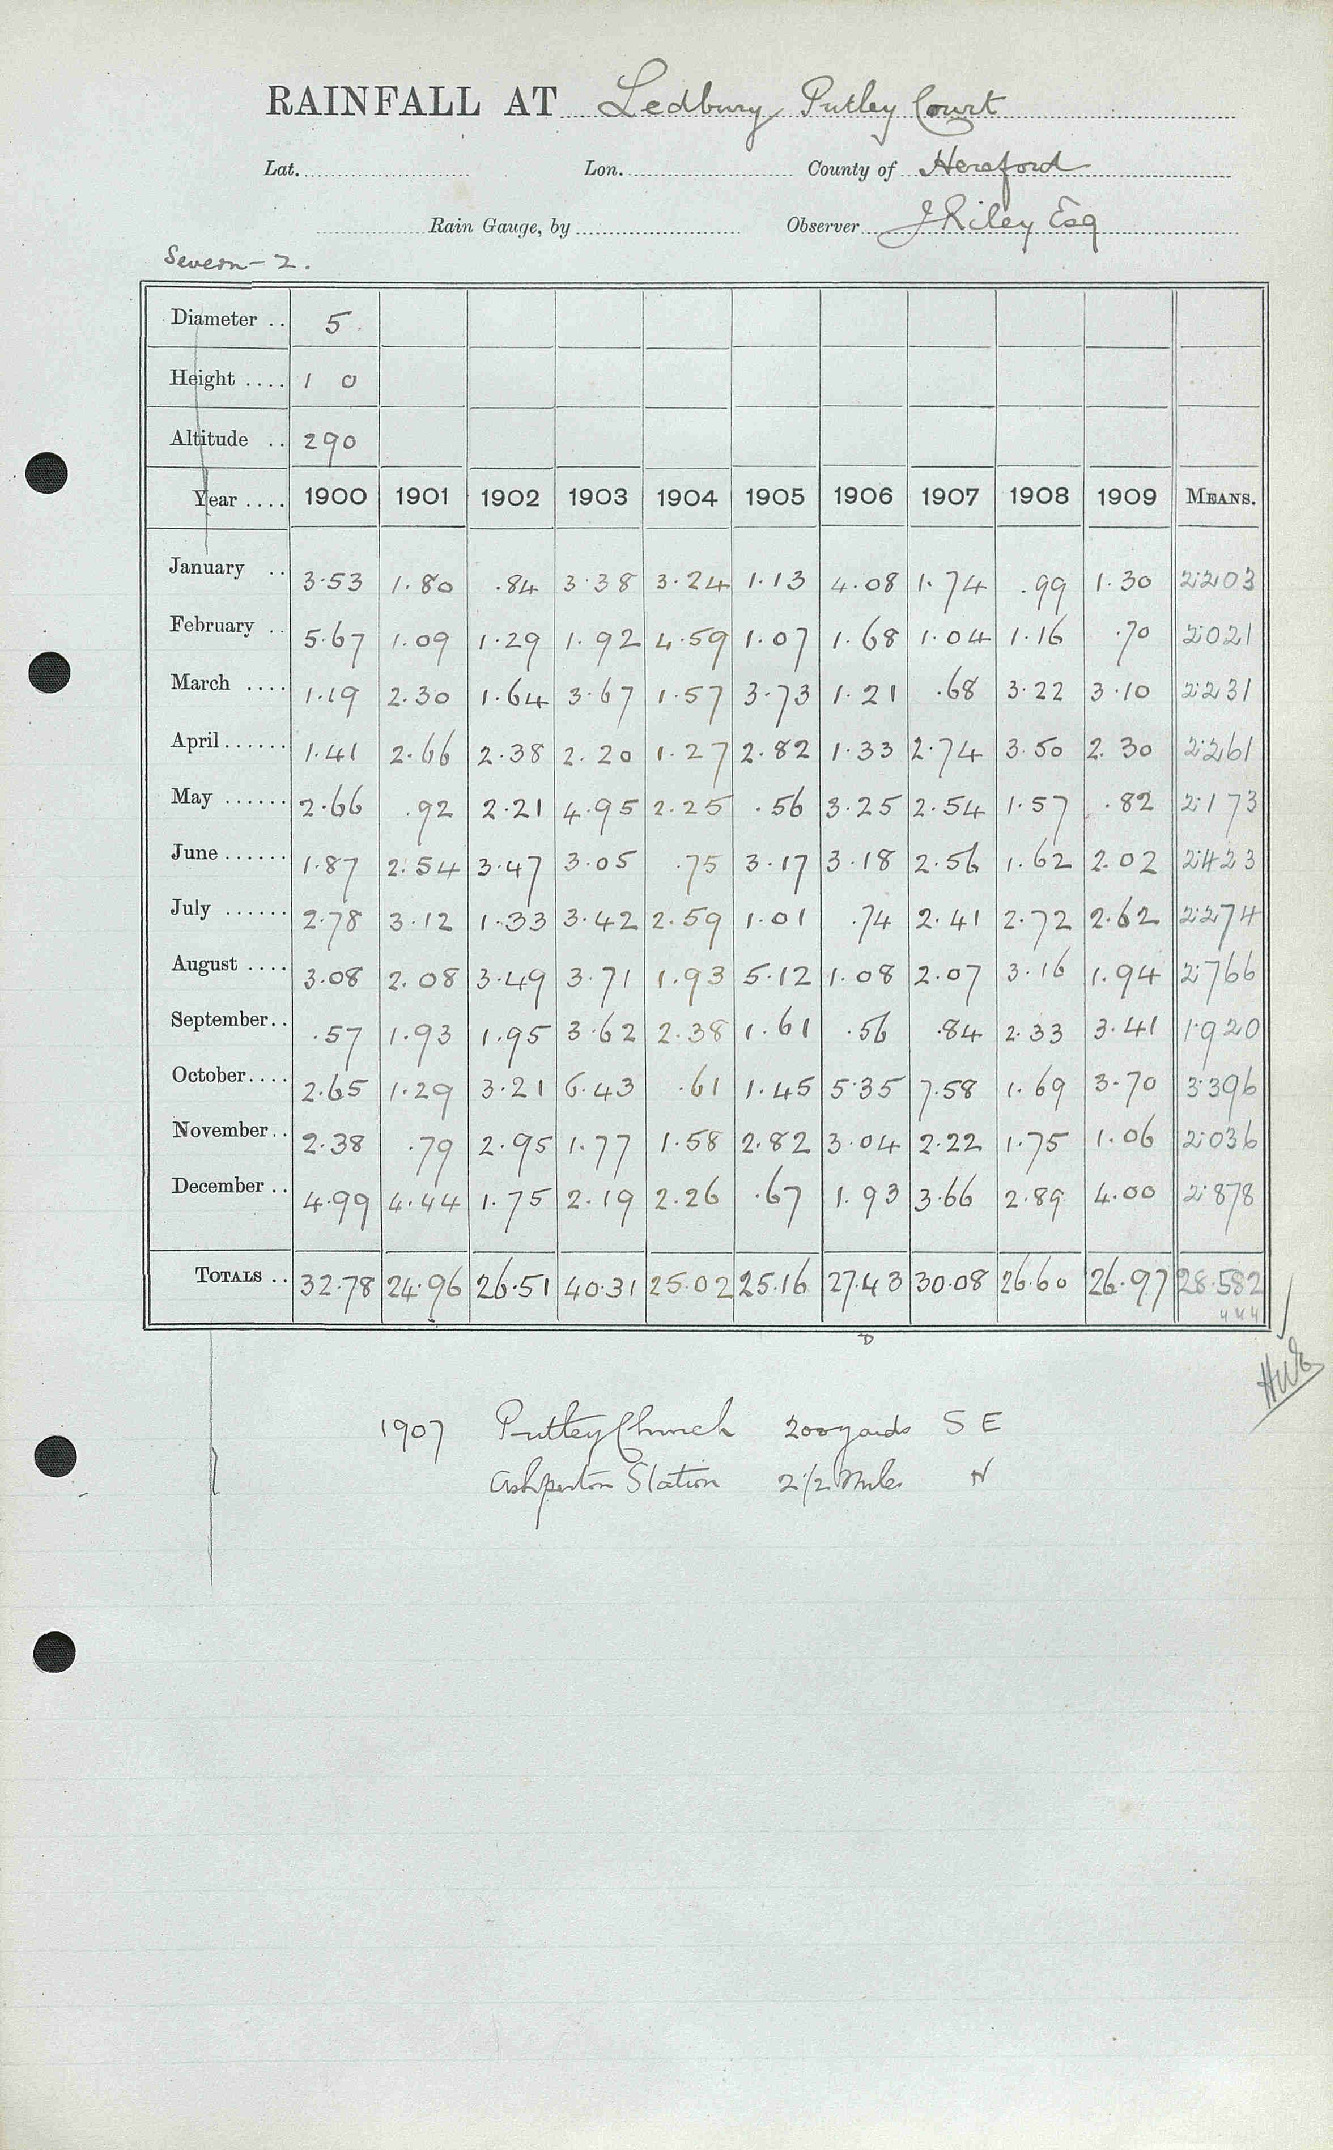 RAINFALL AT Ledbury Putley Court
Lat. Lon. County of Hereford
Rain Gauge, by Observer J Riley Esq
Severn - 2.
Diameter .. 5
Height .... 1 0
Altitude .. 290
Year .... 1900 1901 1902 1903 1904 1905 1906 1907 1908 1909 MEANS.
January .. 3.53 1.80 .84 3.38 3.24 1.13 4.08 1.74 .99 1.30 2.203
February .. 5.67 1.09 1.29 1.92 4.59 1.07 1.68 1.04 1.16 .70 2.021
March .... 1.19 2.30 1.64 3.67 1.57 3.73 1.21 .68 3.22 3.10 2.231
April ...... 1.41 2.66 2.38 2.20 1.27 2.82 1.33 2.74 3.50 2.30 2.261
May ...... 2.66 .92 2.21 4.95 2.25 .56 3.25 2.54 1.57 .82 2.173
June ...... 1.87 2.54 3.47 3.05 .75 3.17 3.18 2.56 1.62 2.02 2.423
July ...... 2.78 3.12 1.33 3.42 2.59 1.01 .74 2.41 2.72 2.62 2.274
August .... 3.08 2.08 3.49 3.71 1.93 5.12 1.08 2.07 3.16 1.94 2.766
September.. .57 1.93 1.95 3.62 2.38 1.61 .56 .84 2.33 3.41 1.920
October.... 2.65 1.29 3.21 6.43 .61 1.45 5.35 7.58 1.69 3.70 3.396
November.. 2.38 .79 2.95 1.77 1.58 2.82 3.04 2.22 1.75 1.06 2.036
December .. 4.99 4.44 1.75 2.19 2.26 .67 1.93 3.66 2.89 4.00 2.878
TOTALS .. 32.78 24.96 26.51 40.31 25.02 25.16 27.43 30.08 26.60 26.97 28.582
D
1907 Putley Church 200 yards S E
Ashperton Station 2 1/2 Miles N